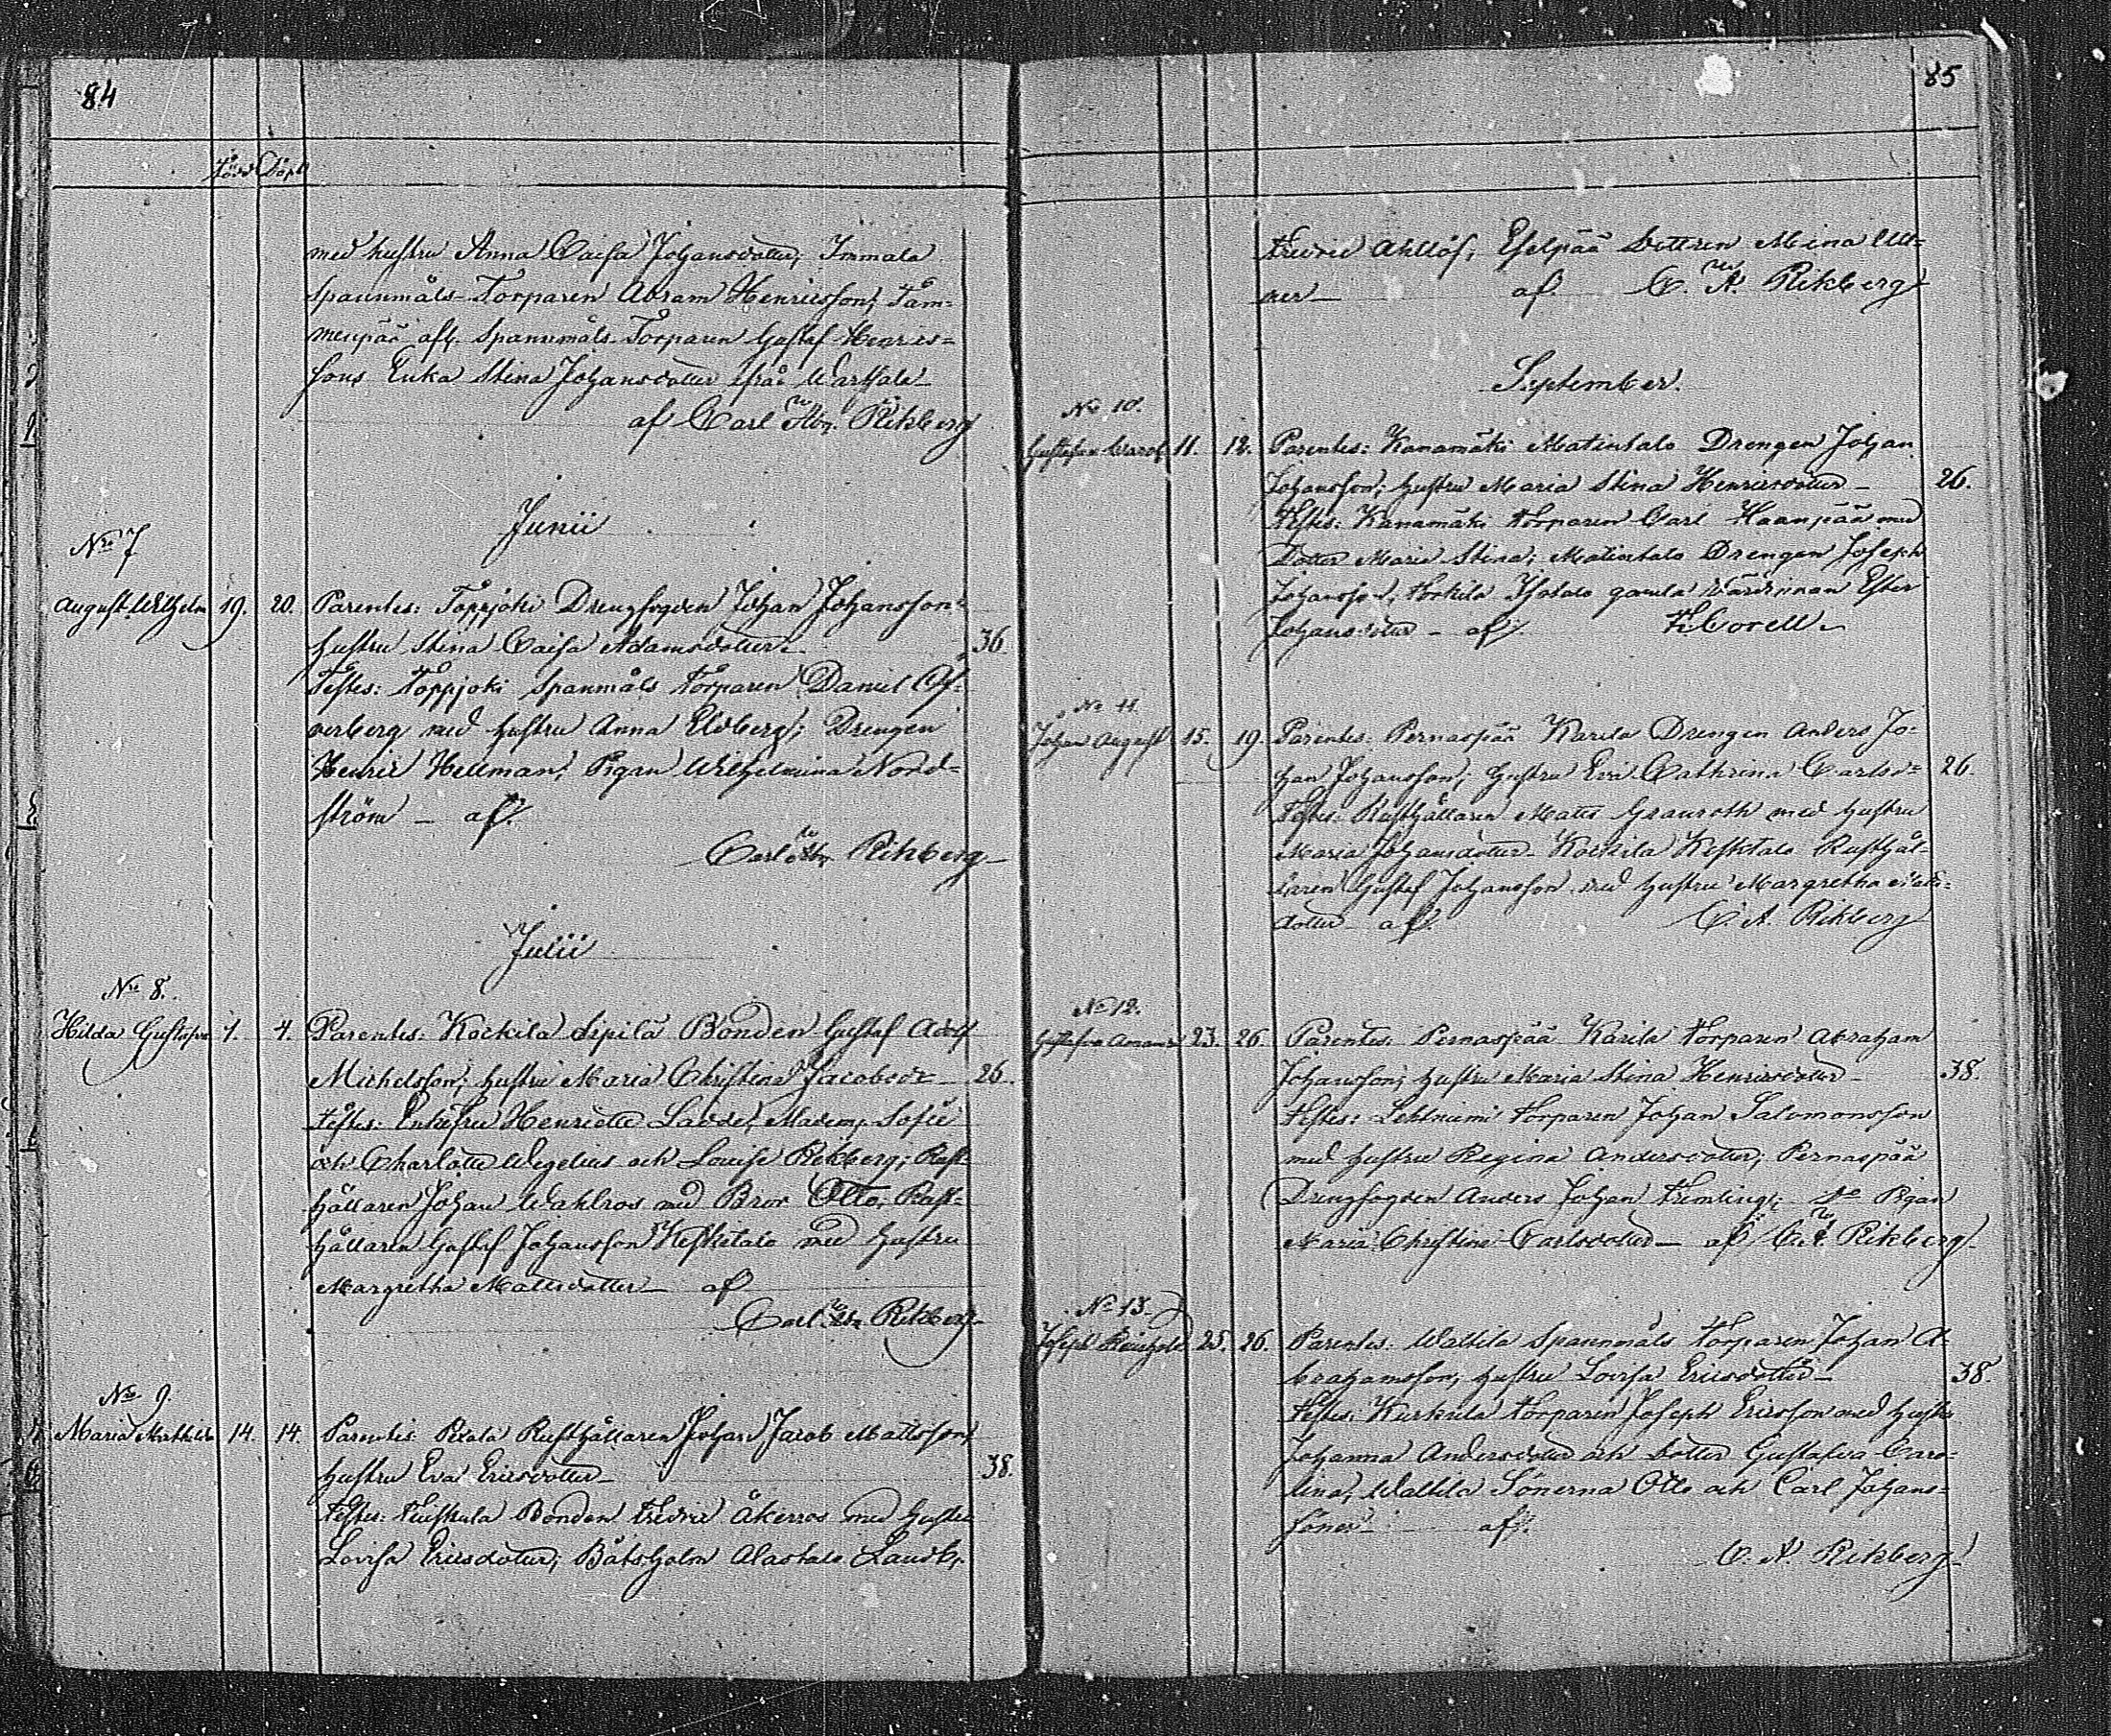 84
Född Döpt
med hustru Anna Caisa Johansdotter, Immala
Spannmåls-Torparen Abram Henricsson, Tam-
menpää afl. Spannmåls-Torparen Gustaf Henrics-
sons Enka Stina Johansdotter ifrån
af Carl Rikberg
Junii
No 7
August Wilhelm 19. 20. Parentes: Toppjoki Drengfogden Johan Johansson
hustru Stina Caisa Adamsdotter 36.
Testes: Toppjoki Spanmåls Torparen Daniel Öf-
verberg med hustru Anna Elvberg; Drengen
Henric Hellman, Pigan Wilhelmina Nord-
ström – af
Carl Rikberg
Julii
No 8.
Hilda Gustafva 1. 4. Parentes: Kockila Sipilä Bonden Gustaf Adolf
Michelsson, hustru Maria Christina Jacobsdr 26.
Testes: Enkefru Henriette Madem. Sofie
och Charlotte Wegelius och Louise Rikberg; Rust-
hållaren Johan Wahlroos med Bror Otto, Rust-
hållaren Gustaf Johansson Keskitalo med hustru
Margretha Mattsdotter – af
Carl Rikberg
No 9.
Maria Mathilda 14. 14. Parentes: Rusthållaren Johan Jacob Mattsson,
hustru Eva Ericsdotter 38.
Testes: Bonden Fredric Åkerros med hustru
Lovisa Ericsdotter; Båtsholm Alastalo
85
Fredric Ahllöf, Eselpää Dottren Mina Ull-
ner – af C. A. Rikberg
September.
No 10.
Gustafva Carol. 11. 12. Parentes: Kanamäki Matintalo Drengen Johan
Johansson; hustru Maria Stina Henricsdotter – 26.
Testes: Kanamäki Torparen Carl Haanpää med
Dotter Maria Stina; Matintalo Drengen Joseph
Johansson, Kockila Isotalo gamla Wärdinnan Ester
Johansdotter – af Corell
No 11.
Johan August 15. 19. Parentes: Pernaspää Karila Drengen Anders Jo-
han Johansson; hustru Eva Cathrina Carlsdr 26.
Testes: Rusthållaren Matts Granroth med hustru
Maria Johansdotter – Kockila Keskitalo Rusthål-
laren Gustaf Johansson med hustru Margretha Matts-
dotter – af C. A. Rikberg
No 12.
Gustafva Amanda 23. 26. Parentes: Pernaspää Karila Torparen Abraham
Johansson; hustru Maria Stina Henricsdotter – 38.
Testes: Lehtniemi Torparen Johan Salomonsson
med hustru Regina Andersdotter; Pernaspää
Drengfogden Anders Johan Fremling; Do Pigan
Maria Christina Carlsdotter – af C. A. Rikberg
No 13.
Joseph Reinhold 25. 26. Parentes: Waltila Spannmåls Torparen Johan A-
brahamsson, hustru Lovisa Ericsdotter – 38.
Testes: Kurkula Torparen Joseph Ericsson med hustru
Johanna Andersdotter och Dotter Gustafva Caro-
lina, Waltila Sönerna Otto och Carl Johans-
söner – af
C. A. Rikberg